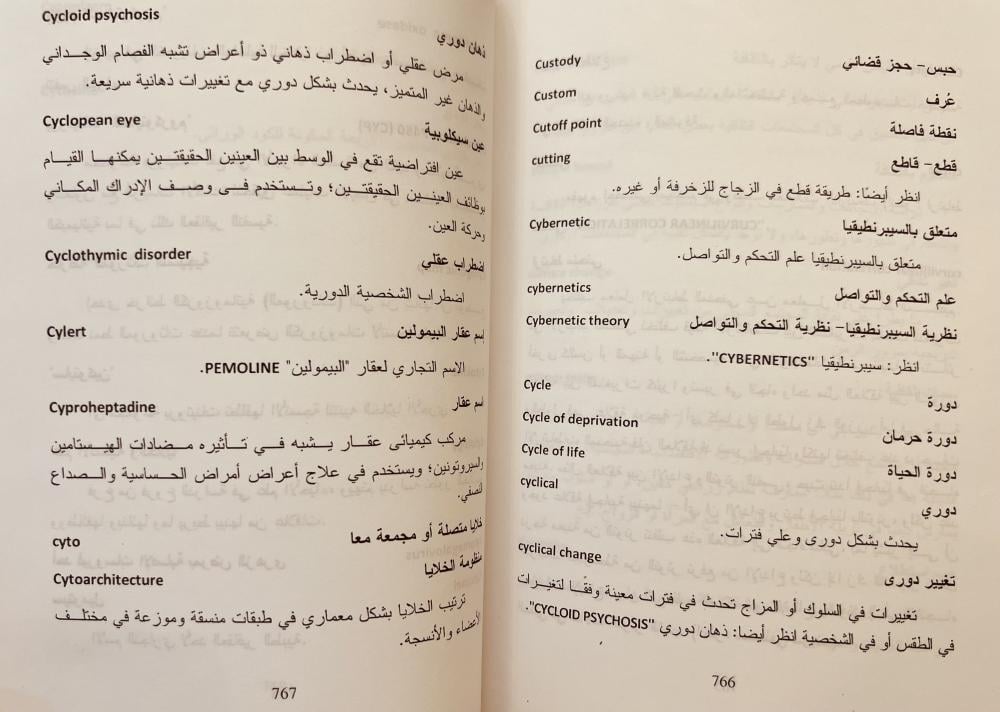 Custody حبس- حجز قضائي
Custom عُرف
Cutoff point نقطة فاصلة
cutting قطع- قاطع
انظر أيضًا: طريقة قطع في الزجاج للزخرفة أو غيره.
Cybernetic متعلق بالسيبرنطيقيا
متعلق بالسيبرنطيقيا علم التحكم والتواصل.
cybernetics علم التحكم والتواصل
Cybernetic theory نظرية السيبرنطيقيا- نظرية التحكم والتواصل
انظر: سيبرنطيقيا "CYBERNETICS".
Cycle دورة
Cycle of deprivation دورة حرمان
Cycle of life دورة الحياة
cyclical دوري
يحدث بشكل دورى وعلي فترات.
cyclical change تغيير دورى
تغييرات في السلوك أو المزاج تحدث في فترات معينة وفقًا لتغيرات
في الطقس أو في الشخصية انظر أيضا: ذهان دوري "CYCLOID PSYCHOSIS".
766
Cycloid psychosis ذهان دوري
مرض عقلي أو اضطراب ذهاني ذو أعراض تشبه الفصام الوجداني
والذهان غير المتميز، يحدث بشكل دوري مع تغييرات ذهانية سريعة.
Cyclopean eye عين سيكلوبية
عين افتراضية تقع في الوسط بين العينين الحقيقتين يمكنها القيام
بوظائف العينين الحقيقتين؛ وتستخدم فى وصف الإدراك المكاني
وحركة العين.
Cyclothymic disorder اضطراب عقلي
اضطراب الشخصية الدورية.
Cylert إسم عقار البيمولين
الاسم التجاري لعقار "البيمولين" PEMOLINE.
Cyproheptadine اسم عقار
مركب كيميائى عقار يشبه في تأثيره مضادات الهيستامين
والسيروتونين؛ ويستخدم في علاج أعراض أمراض الحساسية والصداع
النصفي.
cyto خلايا متصلة أو مجمعة معا
Cytoarchitecture منظومة الخلايا
ترتيب الخلايا بشكل معماري في طبقات منسقة وموزعة في مختلف
الأعضاء والأنسجة.
767